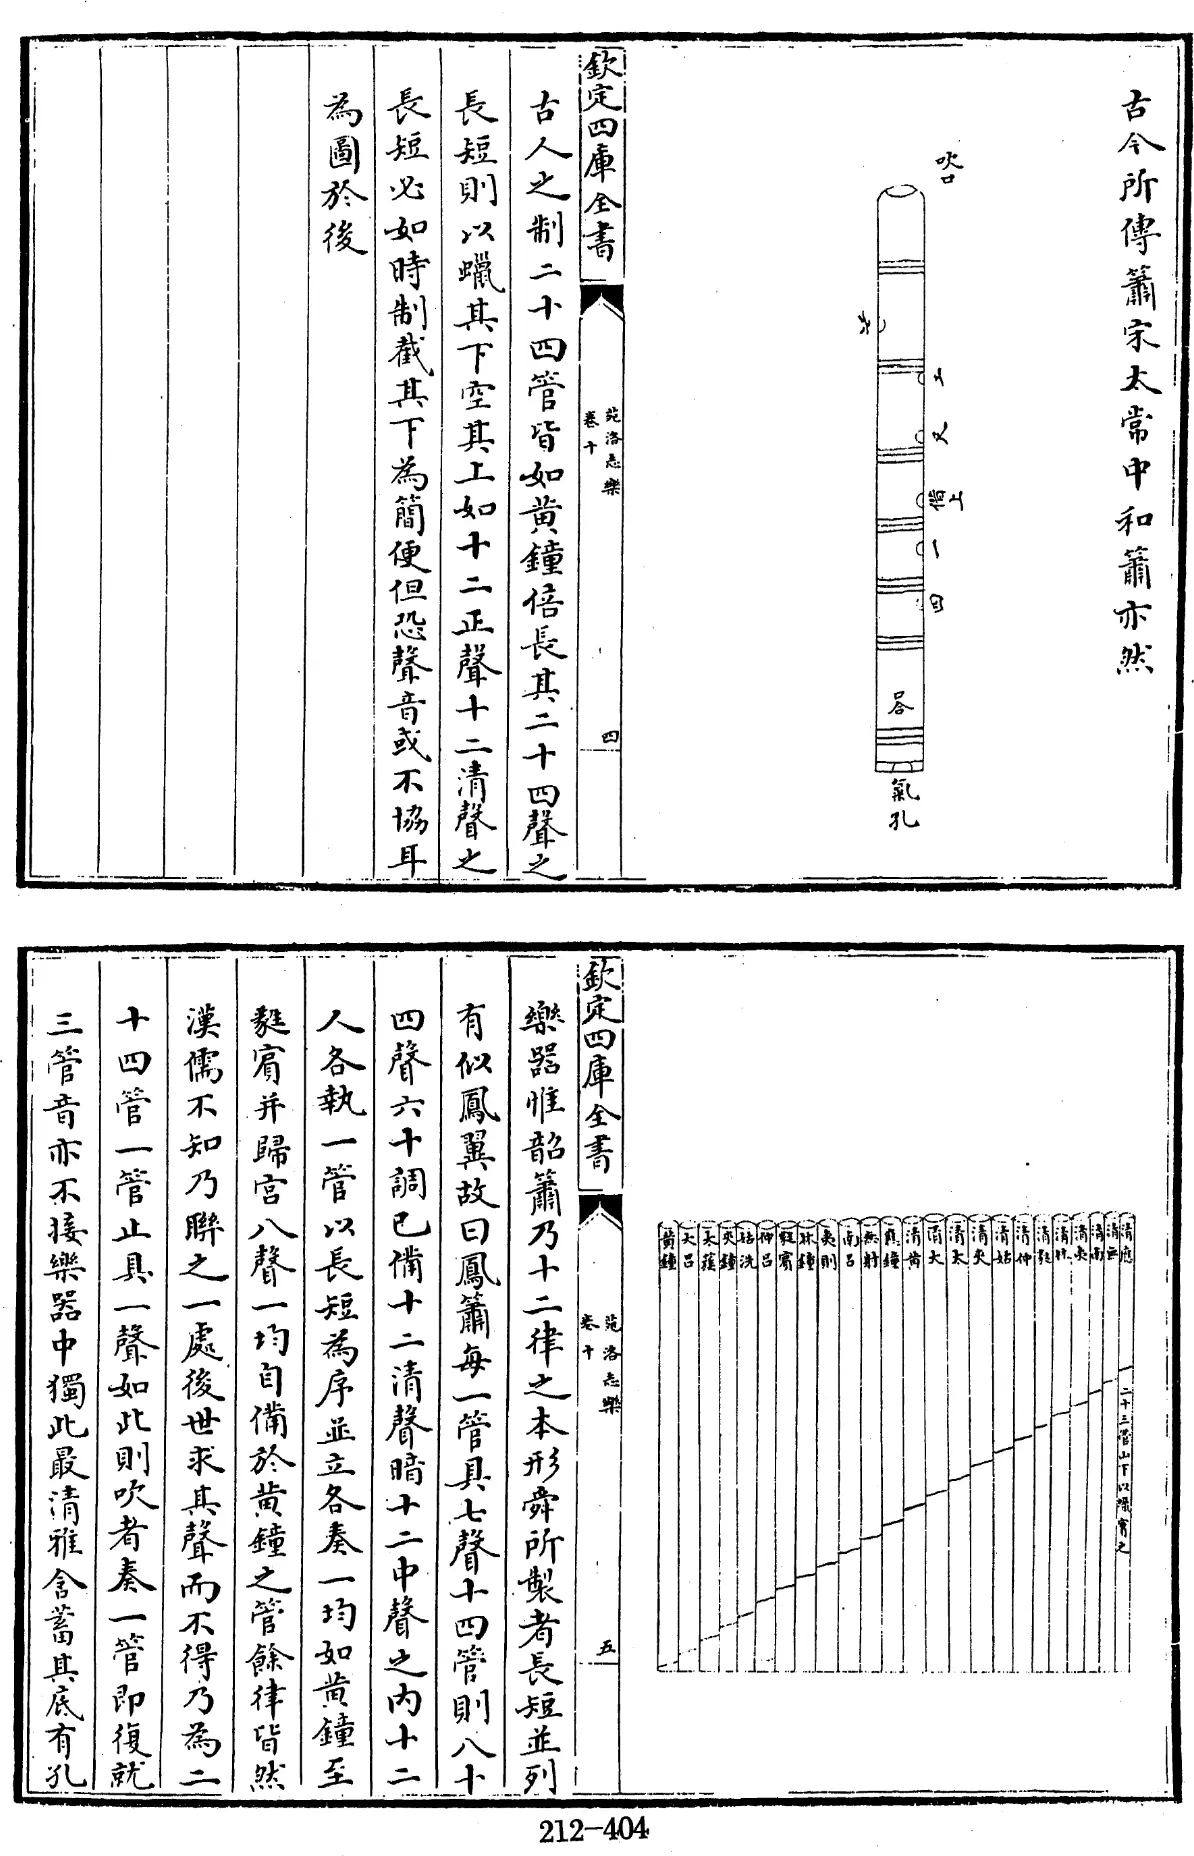 古今所傳簫宋太常中和簫亦然
吹口
上
尺
一
四
合
氣孔
欽定四庫全書
苑洛志樂
卷十
四
古人之制二十四管皆如黄鐘倍長其二十四聲之
長短則以蠟其下空其上如十二正聲十二清聲之
長短必如時制截其下為簡便但恐聲音或不協耳
為圖於後
清應
清無
清南
清夷
清林
清蕤
清仲
清姑
清夾
清太
清大
清黄
應鐘
無射
南呂
夷則
林鐘
蕤賓
仲呂
姑洗
夾鐘
太蔟
大呂
黄鐘
二十三管山下以蠟實之
欽定四庫全書
苑洛志樂
卷十
五
樂器惟韶簫乃十二律之本形舜所製者長短並列
有似鳳翼故曰鳳簫每一管具七聲十四管則八十
四聲六十調已備十二清聲暗十二中聲之内十二
人各執一管以長短為序並立各奏一均如黄鐘至
蕤賓并歸宫八聲一均自備於黄鐘之管餘律皆然
漢儒不知乃聯之一處後世求其聲而不得乃為二
十四管一管止具一聲如此則吹者奏一管即復就
三管音亦不接樂器中獨此最清雅含蓄其底有孔
212-404